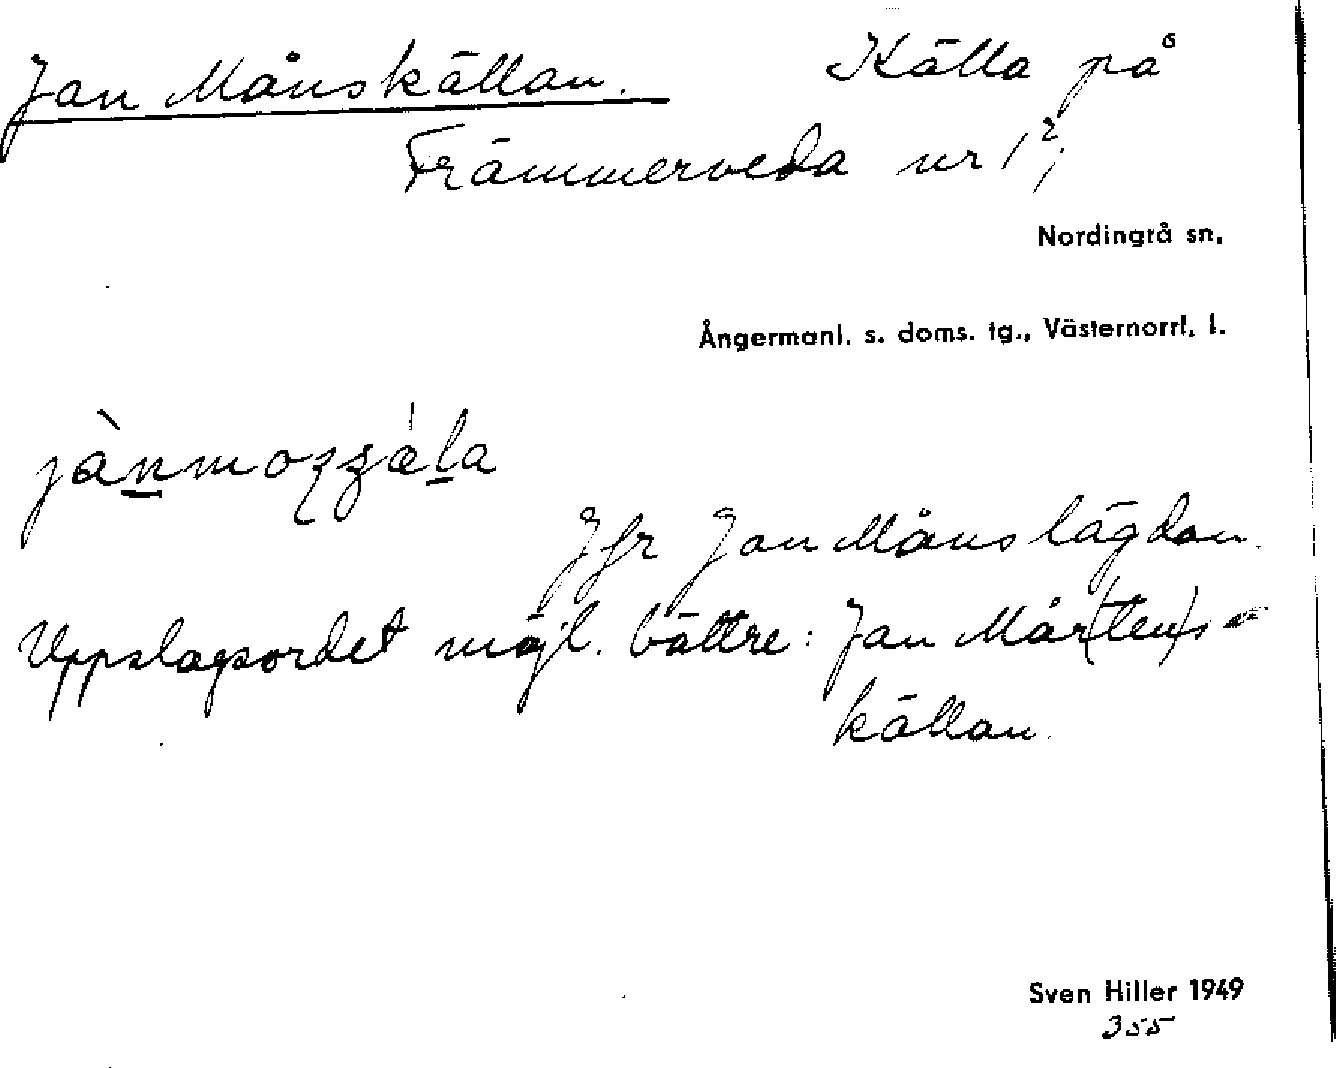 Jan Månskällan. Källa på
Främmerveda nr 1²;
Nordingrå sn,
Ångermanl. s. doms. tg., Västernorrl. l.
Jfr Jan Månslägdan.
Uppslagsordet möjl. bättre: Jan Mår(ten)s-
källan.
Sven Hiller 1949
355